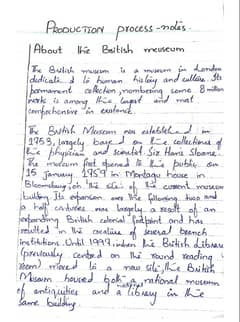 PRODUCTION process-notes.
About the British meuseum
The British museum is a museum in London
dedicated to human history and culture. Its
permanent collection, nombering some 8 million
work is among the largest and mot
comprehensive in existence.
The British Museum was established in
1753, largely based on the collections of
the physician and scientist Sir Hans Sloane.
The museum first opened to the public on
15 january 1759 in Montagu house in
Bloomsbury, on the site of the current museum
building. Its expansion over the following two and
a half centuries was largely a result of an
expanding British colonial footprint and has
resulted in the creation of several branch
institutions. Until 1997, when the British Library
(previously centred on the round reading
room) moved to a new site, the British
Museum housed both a national museum
of antiquities and a library in the
same building.